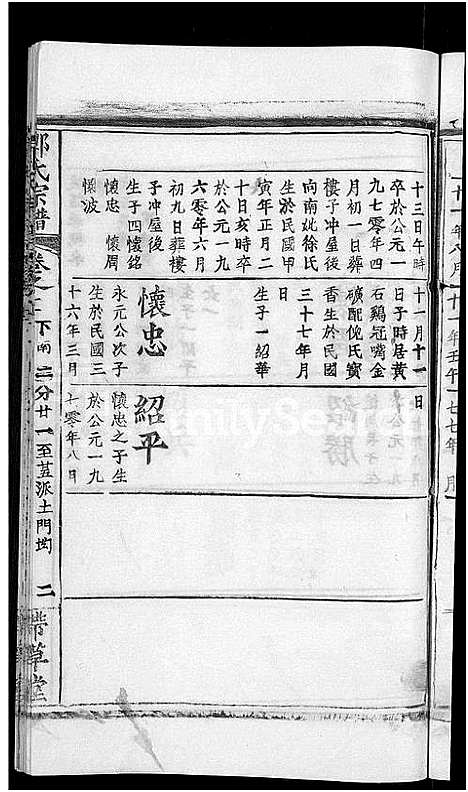 十三日午時
卒於公元一
九七零年四
月初一日葬
樓子冲屋後
向南姚徐氏
生於民國甲
寅年正月二
十日亥時卒
於公元一九
六零年六月
初九日葬樓
子冲屋後
生子四懷銘
懷忠 懷周
懷波
十一月十一日
日子時居黃
石鷄冠嘴金
礦配倪氏寶
香生於民國
三十七年月
生子一紹華
懷忠
永元公次子
生於民國三
十六年三月
紹平
懷忠之子生
於公元一九
七零年八月
氏宗譜
卷之
下南二分廿一至荳派土門坳
二
草堂